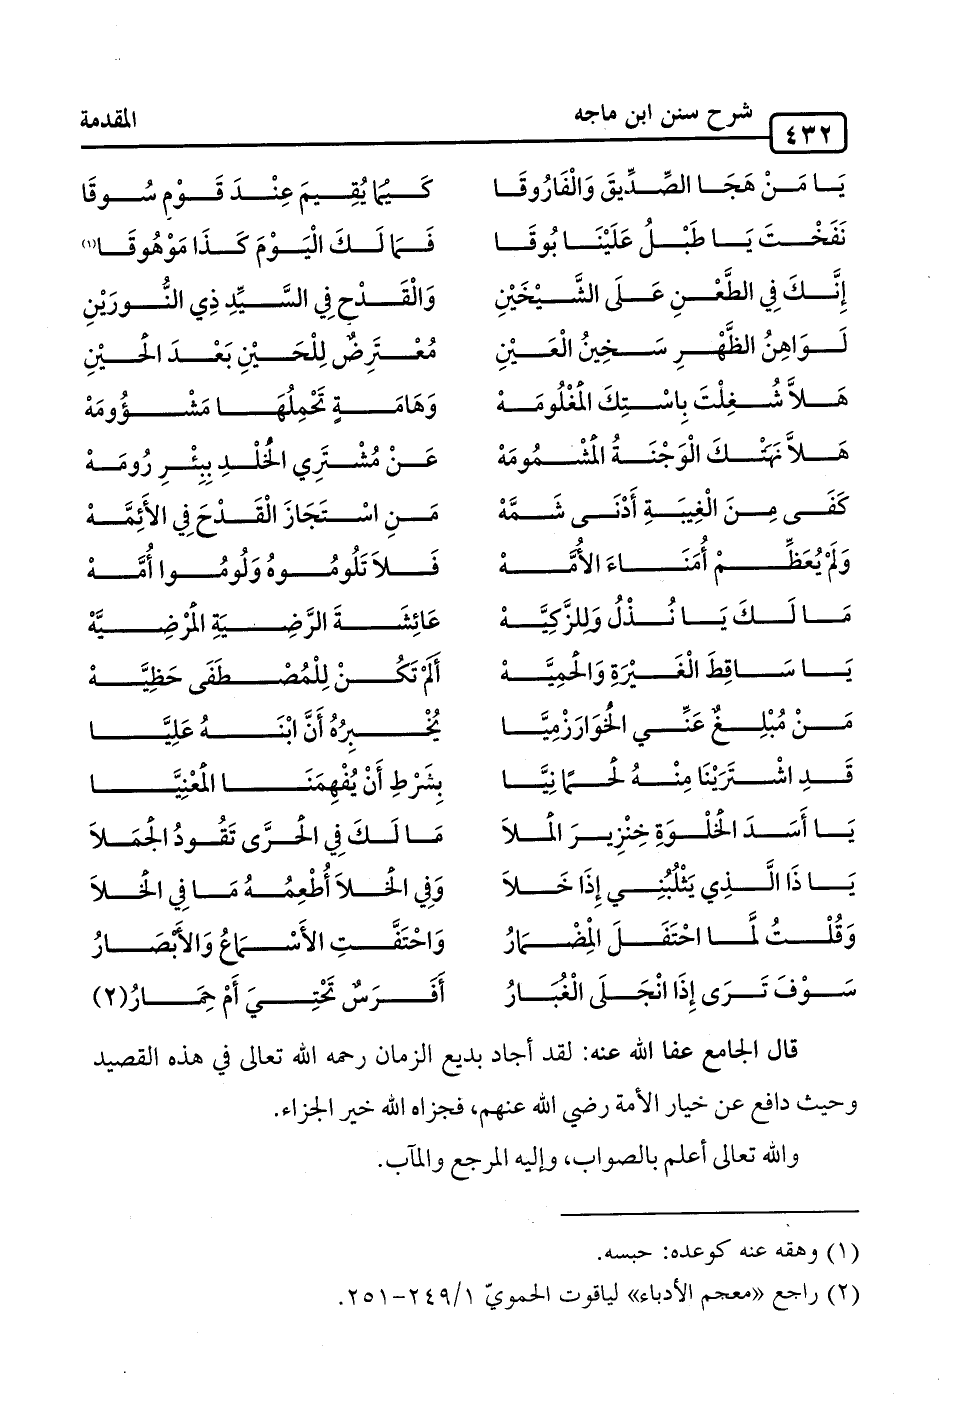 ٤٣٢ شرح سنن ابن ماجه المقدمة
يَا مَنْ هَجَا الصِّدِّيقَ وَالْفَارُوقَا كَيْمَا يُقِيمَ عِنْدَ قَوْمٍ سُوقَا
نَفَخْتَ يَا طَبْلُ عَلَيْنَا بُوقَا فَمَا لَكَ الْيَوْمَ كَذَا مَوْهُوقَا(١)
إِنَّكَ فِي الطَّعْنِ عَلَى الشَّيْخَيْنِ وَالْقَدْحِ فِي السَّيِّدِ ذِي النُّورَيْنِ
لَوَاهِنُ الظَّهْرِ سَخِينُ الْعَيْنِ مُعْتَرِضٌ لِلْحَيْنِ بَعْدَ الْحَيْنِ
هَلاَّ شُغِلْتَ بِاسْتِكَ الْمَغْلُومَهْ وَهَامَةٍ تَحْمِلُهَا مَشْؤُومَهْ
هَلاَّ نَهَتْكَ الْوَجْنَةُ الْمَشْمُومَهْ عَنْ مُشْتَرِي الْخُلْدِ بِبِئْرِ رُومَهْ
كَفَى مِنَ الْغِيبَةِ أَدْنَى شَمَّهْ مَنِ اسْتَجَازَ الْقَدْحَ فِي الأَئِمَّهْ
وَلَمْ يُعَظِّمْ أُمَنَاءَ الأُمَّهْ فَلاَ تَلُومُوهُ وَلُومُوا أُمَّهْ
مَا لَكَ يَا نُذْلُ وَلِلزَّكِيَّهْ عَائِشَةَ الرَّضِيَةِ الْمَرْضِيَّهْ
يَا سَاقِطَ الْغَيْرَةِ وَالْحَمِيَّهْ أَلَمْ تَكُنْ لِلْمُصْطَفَى حَظِيَّهْ
مَنْ مُبْلِغٌ عَنِّي الْخُوَارَزْمِيَّا يُخْبِرُهُ أَنَّ ابْنَهُ عَلِيَّا
قَدِ اشْتَرَيْنَا مِنْهُ لَحْمًا نِيَّا بِشَرْطِ أَنْ يُفْهِمَنَا الْمَعْنِيَّا
يَا أَسَدَ الْخَلْوَةِ خِنْزِيرَ الْمَلاَ مَا لَكَ فِي الْحَرَّى تَقُودُ الْجَمَلاَ
يَا ذَا الَّذِي يَثْلُبُنِي إِذَا خَلاَ وَفِي الْخَلاَ أُطْعِمُهُ مَا فِي الْخَلاَ
وَقُلْتُ لَمَّا احْتَفَلَ الْمِضْمَارُ وَاحْتَفَّتِ الأَسْمَاعُ وَالأَبْصَارُ
سَوْفَ تَرَى إِذَا انْجَلَى الْغُبَارُ أَفَرَسٌ تَحْتِيَ أَمْ حِمَارُ(٢)
قال الجامع عفا الله عنه: لقد أجاد بديع الزمان رحمه الله تعالى في هذه القصيد
وحيث دافع عن خيار الأمة رضي الله عنهم، فجزاه الله خير الجزاء.
والله تعالى أعلم بالصواب، وإليه المرجع والمآب.
(١) وهقه عنه كوعده: حبسه.
(٢) راجع «معجم الأدباء» لياقوت الحمويّ ١/ ٢٤٩-٢٥١.